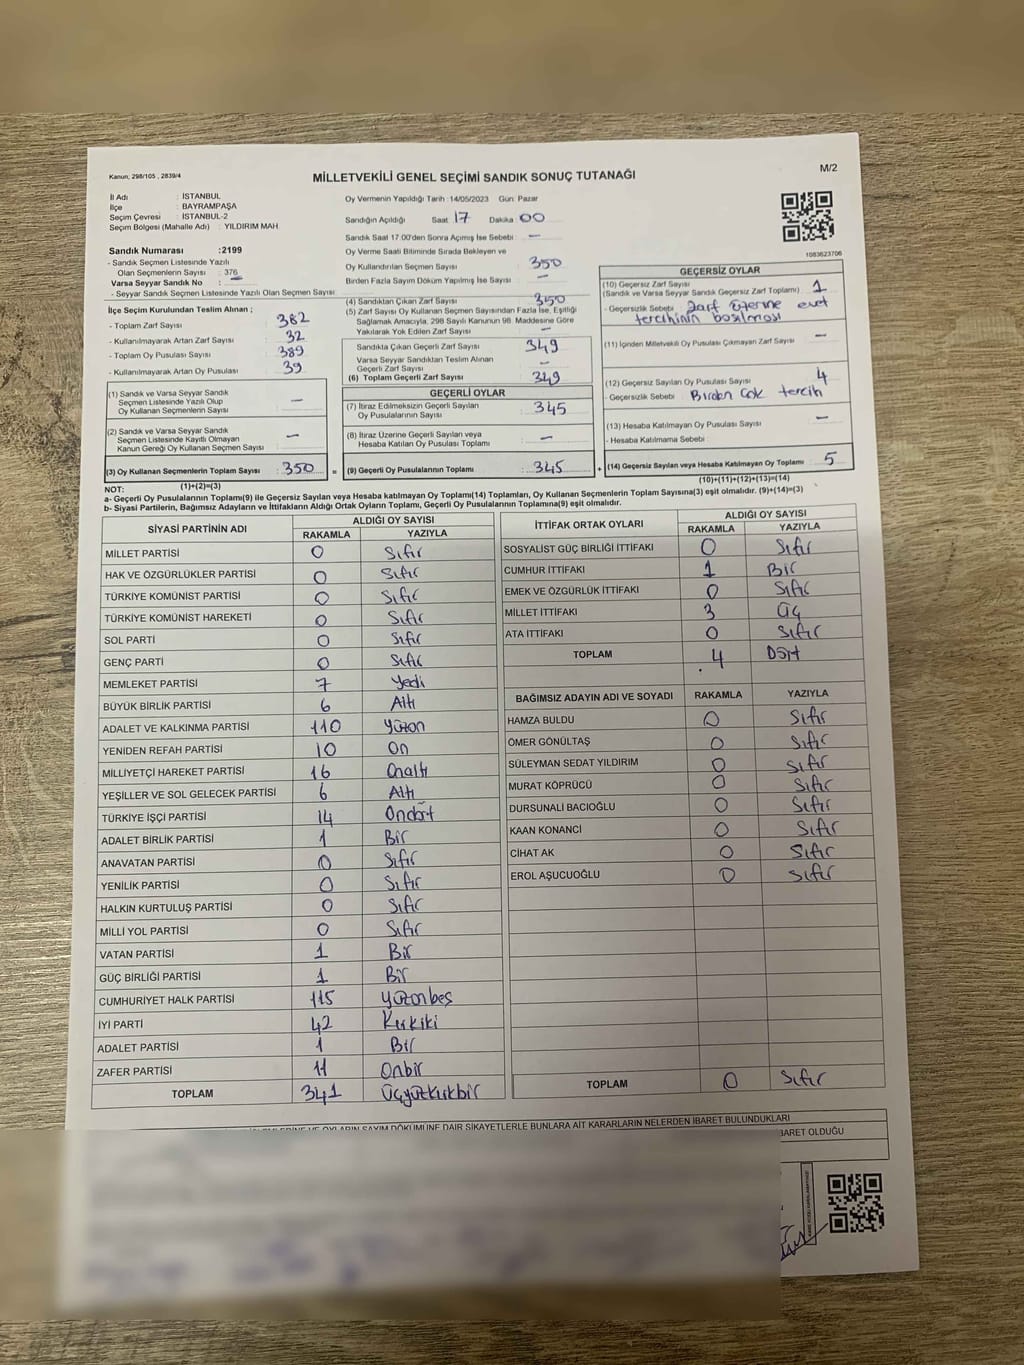 Kanun; 298/105 , 2839/4
MİLLETVEKİLİ GENEL SEÇİMİ SANDIK SONUÇ TUTANAĞI
M/2
İl Adı : İSTANBUL
İlçe : BAYRAMPAŞA
Seçim Çevresi : İSTANBUL-2
Seçim Bölgesi (Mahalle Adı) : YILDIRIM MAH.
Sandık Numarası :2199
- Sandık Seçmen Listesinde Yazılı
Olan Seçmenlerin Sayısı : 376
Varsa Seyyar Sandık No :
- Seyyar Sandık Seçmen Listesinde Yazılı Olan Seçmen Sayısı:
İlçe Seçim Kurulundan Teslim Alınan ;
- Toplam Zarf Sayısı : 382
- Kullanılmayarak Artan Zarf Sayısı : 32
- Toplam Oy Pusulası Sayısı : 389
- Kullanılmayarak Artan Oy Pusulası : 39
(1) Sandık ve Varsa Seyyar Sandık
Seçmen Listesinde Yazılı Olup
Oy Kullanan Seçmenlerin Sayısı : —
(2) Sandık ve Varsa Seyyar Sandık
Seçmen Listesinde Kayıtlı Olmayan
Kanun Gereği Oy Kullanan Seçmen Sayısı : —
(3) Oy Kullanan Seçmenlerin Toplam Sayısı : 350
(1)+(2)=(3)
Oy Vermenin Yapıldığı Tarih :14/05/2023 Gün: Pazar
Sandığın Açıldığı Saat 17 Dakika 00
Sandık Saat 17:00'den Sonra Açımış İse Sebebi : —
Oy Verme Saati Bitiminde Sırada Bekleyen ve
Oy Kullandırılan Seçmen Sayısı : 350
Birden Fazla Sayım Döküm Yapılmış İse Sayısı : —
(4) Sandıktan Çıkan Zarf Sayısı : 350
(5) Zarf Sayısı Oy Kullanan Seçmen Sayısından Fazla İse, Eşitliği
Sağlamak Amacıyla, 298 Sayılı Kanunun 98. Maddesine Göre
Yakılarak Yok Edilen Zarf Sayısı
Sandıkta Çıkan Geçerli Zarf Sayısı : 349
Varsa Seyyar Sandıktan Teslim Alınan
Geçerli Zarf Sayısı : —
(6) Toplam Geçerli Zarf Sayısı : 349
GEÇERLİ OYLAR
(7) İtiraz Edilmeksizin Geçerli Sayılan
Oy Pusulalarının Sayısı : 345
(8) İtiraz Üzerine Geçerli Sayılan veya
Hesaba Katılan Oy Pusulası Toplamı : —
= (9) Geçerli Oy Pusulalarının Toplamı : 345 +
1083623706
GEÇERSİZ OYLAR
(10) Geçersiz Zarf Sayısı
(Sandık ve Varsa Seyyar Sandık Geçersiz Zarf Toplamı) : 1
- Geçersizlik Sebebi : Zarf üzerine evet
tercihinin basılması
(11) İçinden Milletvekili Oy Pusulası Çıkmayan Zarf Sayısı : —
(12) Geçersiz Sayılan Oy Pusulası Sayısı : 4
- Geçersizlik Sebebi : Birden Çok tercih
(13) Hesaba Katılmayan Oy Pusulası Sayısı : —
- Hesaba Katılmama Sebebi :
(14) Geçersiz Sayılan veya Hesaba Katılmayan Oy Toplamı : 5
(10)+(11)+(12)+(13)=(14)
NOT:
a- Geçerli Oy Pusulalarının Toplamı(9) ile Geçersiz Sayılan veya Hesaba katılmayan Oy Toplamı(14) Toplamları, Oy Kullanan Seçmenlerin Toplam Sayısına(3) eşit olmalıdır. (9)+(14)=(3)
b- Siyasi Partilerin, Bağımsız Adayların ve İttifakların Aldığı Ortak Oyların Toplamı, Geçerli Oy Pusulalarının Toplamına(9) eşit olmalıdır.
SİYASİ PARTİNİN ADI ALDIĞI OY SAYISI
RAKAMLA YAZIYLA
MİLLET PARTİSİ 0 Sıfır
HAK VE ÖZGÜRLÜKLER PARTİSİ 0 Sıfır
TÜRKİYE KOMÜNİST PARTİSİ 0 Sıfır
TÜRKİYE KOMÜNİST HAREKETİ 0 Sıfır
SOL PARTİ 0 Sıfır
GENÇ PARTİ 0 Sıfır
MEMLEKET PARTİSİ 7 Yedi
BÜYÜK BİRLİK PARTİSİ 6 Altı
ADALET VE KALKINMA PARTİSİ 110 Yüzon
YENİDEN REFAH PARTİSİ 10 On
MİLLİYETÇİ HAREKET PARTİSİ 16 Onaltı
YEŞİLLER VE SOL GELECEK PARTİSİ 6 Altı
TÜRKİYE İŞÇİ PARTİSİ 14 Ondört
ADALET BİRLİK PARTİSİ 1 Bir
ANAVATAN PARTİSİ 0 Sıfır
YENİLİK PARTİSİ 0 Sıfır
HALKIN KURTULUŞ PARTİSİ 0 Sıfır
MİLLİ YOL PARTİSİ 0 Sıfır
VATAN PARTİSİ 1 Bir
GÜÇ BİRLİĞİ PARTİSİ 1 Bir
CUMHURİYET HALK PARTİSİ 115 yüzonbeş
İYİ PARTİ 42 Kırkiki
ADALET PARTİSİ 1 Bir
ZAFER PARTİSİ 11 Onbir
TOPLAM 341 Üçyüzkırkbir
İTTİFAK ORTAK OYLARI ALDIĞI OY SAYISI
RAKAMLA YAZIYLA
SOSYALİST GÜÇ BİRLİĞİ İTTİFAKI 0 Sıfır
CUMHUR İTTİFAKI 1 Bir
EMEK VE ÖZGÜRLÜK İTTİFAKI 0 Sıfır
MİLLET İTTİFAKI 3 Üç
ATA İTTİFAKI 0 Sıfır
TOPLAM 4 Dört
BAĞIMSIZ ADAYIN ADI VE SOYADI RAKAMLA YAZIYLA
HAMZA BULDU 0 Sıfır
ÖMER GÖNÜLTAŞ 0 Sıfır
SÜLEYMAN SEDAT YILDIRIM 0 Sıfır
MURAT KÖPRÜCÜ 0 Sıfır
DURSUNALİ BACIOĞLU 0 Sıfır
KAAN KONANCİ 0 Sıfır
CİHAT AK 0 Sıfır
EROL AŞUCUOĞLU 0 Sıfır
TOPLAM 0 Sıfır
OYLARIN SAYIM DÖKÜMÜNE DAİR ŞİKAYETLERLE BUNLARA AİT KARARLARIN NELERDEN İBARET BULUNDUKLARI
BARET OLDUĞU